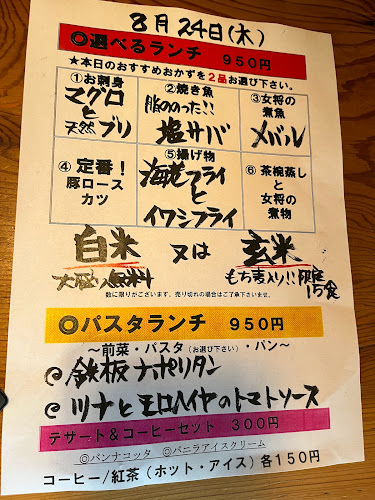 8月24日(木)
◎選べるランチ 950円
★本日のおすすめおかずを2品お選び下さい。
①お刺身
マグロ
と
天然ブリ
②焼き魚
脂ののった!!
塩サバ
③女将の
煮魚
メバル
④ 定番!
豚ロース
カツ
⑤揚げ物
海老フライ
と
イワシフライ
⑥ 茶椀蒸し
と
女将の
煮物
白米 又は 玄米
大盛り無料 もち麦入り!!限定
15食
数に限りがございます。売り切れの場合はご了承下さいませ。
◎パスタランチ 950円
～前菜・パスタ(お選び下さい)・パン～
◎鉄板ナポリタン
◎ツナとモロヘイヤのトマトソース
デザート&コーヒーセット 300円
◎パンナコッタ ◎バニラアイスクリーム
コーヒー/紅茶(ホット・アイス)各150円